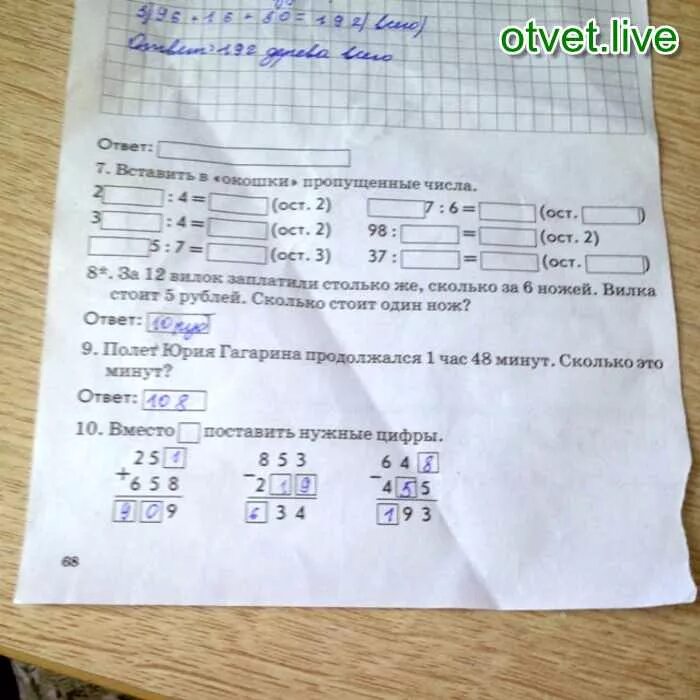 otvet.live
3) 96 + 16 + 80 = 192 (всего)
Ответ: 192 дерева всего
Ответ:
7. Вставить в «окошки» пропущенные числа.
2 : 4 = (ост. 2) 7 : 6 = (ост. )
3 : 4 = (ост. 2) 98 : = (ост. 2)
5 : 7 = (ост. 3) 37 : = (ост. )
8*. За 12 вилок заплатили столько же, сколько за 6 ножей. Вилка
стоит 5 рублей. Сколько стоит один нож?
Ответ: 10 руб
9. Полет Юрия Гагарина продолжался 1 час 48 минут. Сколько это
минут?
Ответ: 108
10. Вместо поставить нужные цифры.
251 853 648
+ 658 - 219 - 455
909 634 193
68